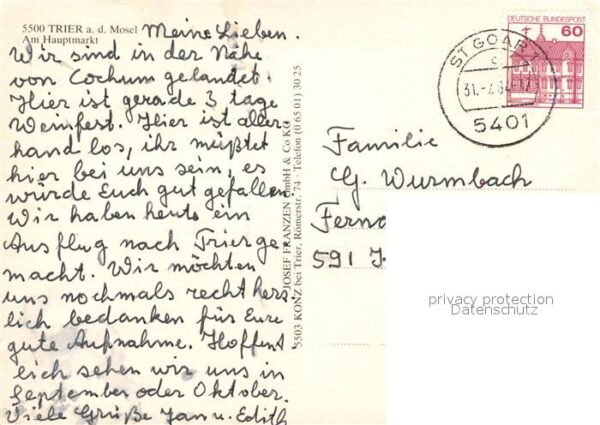 5500 TRIER a. d. Mosel
Am Hauptmarkt
Meine Lieben.
Wir sind in der Nähe
von Cochum gelandet
Hier ist gerade 3 tage
Weinfest. Hier ist aller-
hand los, ihr müßtet
hier bei uns sein, es
würde Euch gut gefallen.
Wir haben heute ein
Ausflug nach Trier ge
macht. Wir möchten
uns nochmals recht herz
lich bedanken für Eure
gute Aufnahme. Hoffent
lich sehen wir uns in
September oder Oktober.
Viele Grüße Jan u. Edith
JOSEF FRANZEN GmbH & Co KG
5503 KONZ bei Trier, Römerstr. 74 - Telefon (0 65 01) 30 25
DEUTSCHE BUNDESPOST
60
ST GOAR
5401
Familie
G. Wurmbach
591
privacy protection
Datenschutz